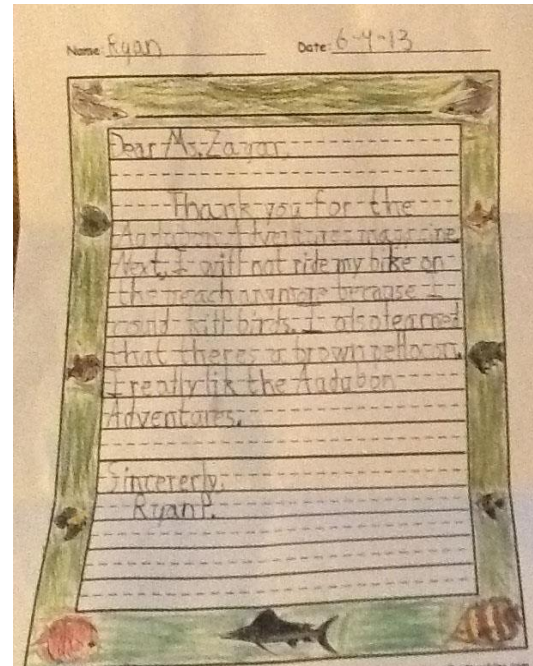 Name: Ryan Date: 6-4-13
Dear Ms. Zagar,
Thank you for the
Audubon Adventures magazine
Next, I will not ride my bike on
the beach anymore because I
could kill birds. I also learned
that theres a brown pellocon.
I really lik the Audubon
Adventures.
Sincererly,
Ryan P.